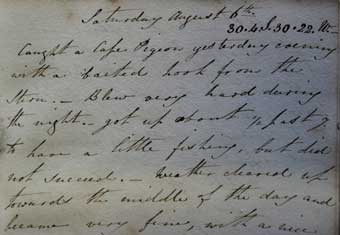 Saturday August 6th
30.4 S. 30.22
Caught a Cape Pigeon yesterday evening
with a baited hook from the
Stern. — Blew very hard during
the night — got up about ½ past 7
to have a little fishing, but did
not succeed. — Weather cleared up
towards the middle of the day and
became very fine, with a nice